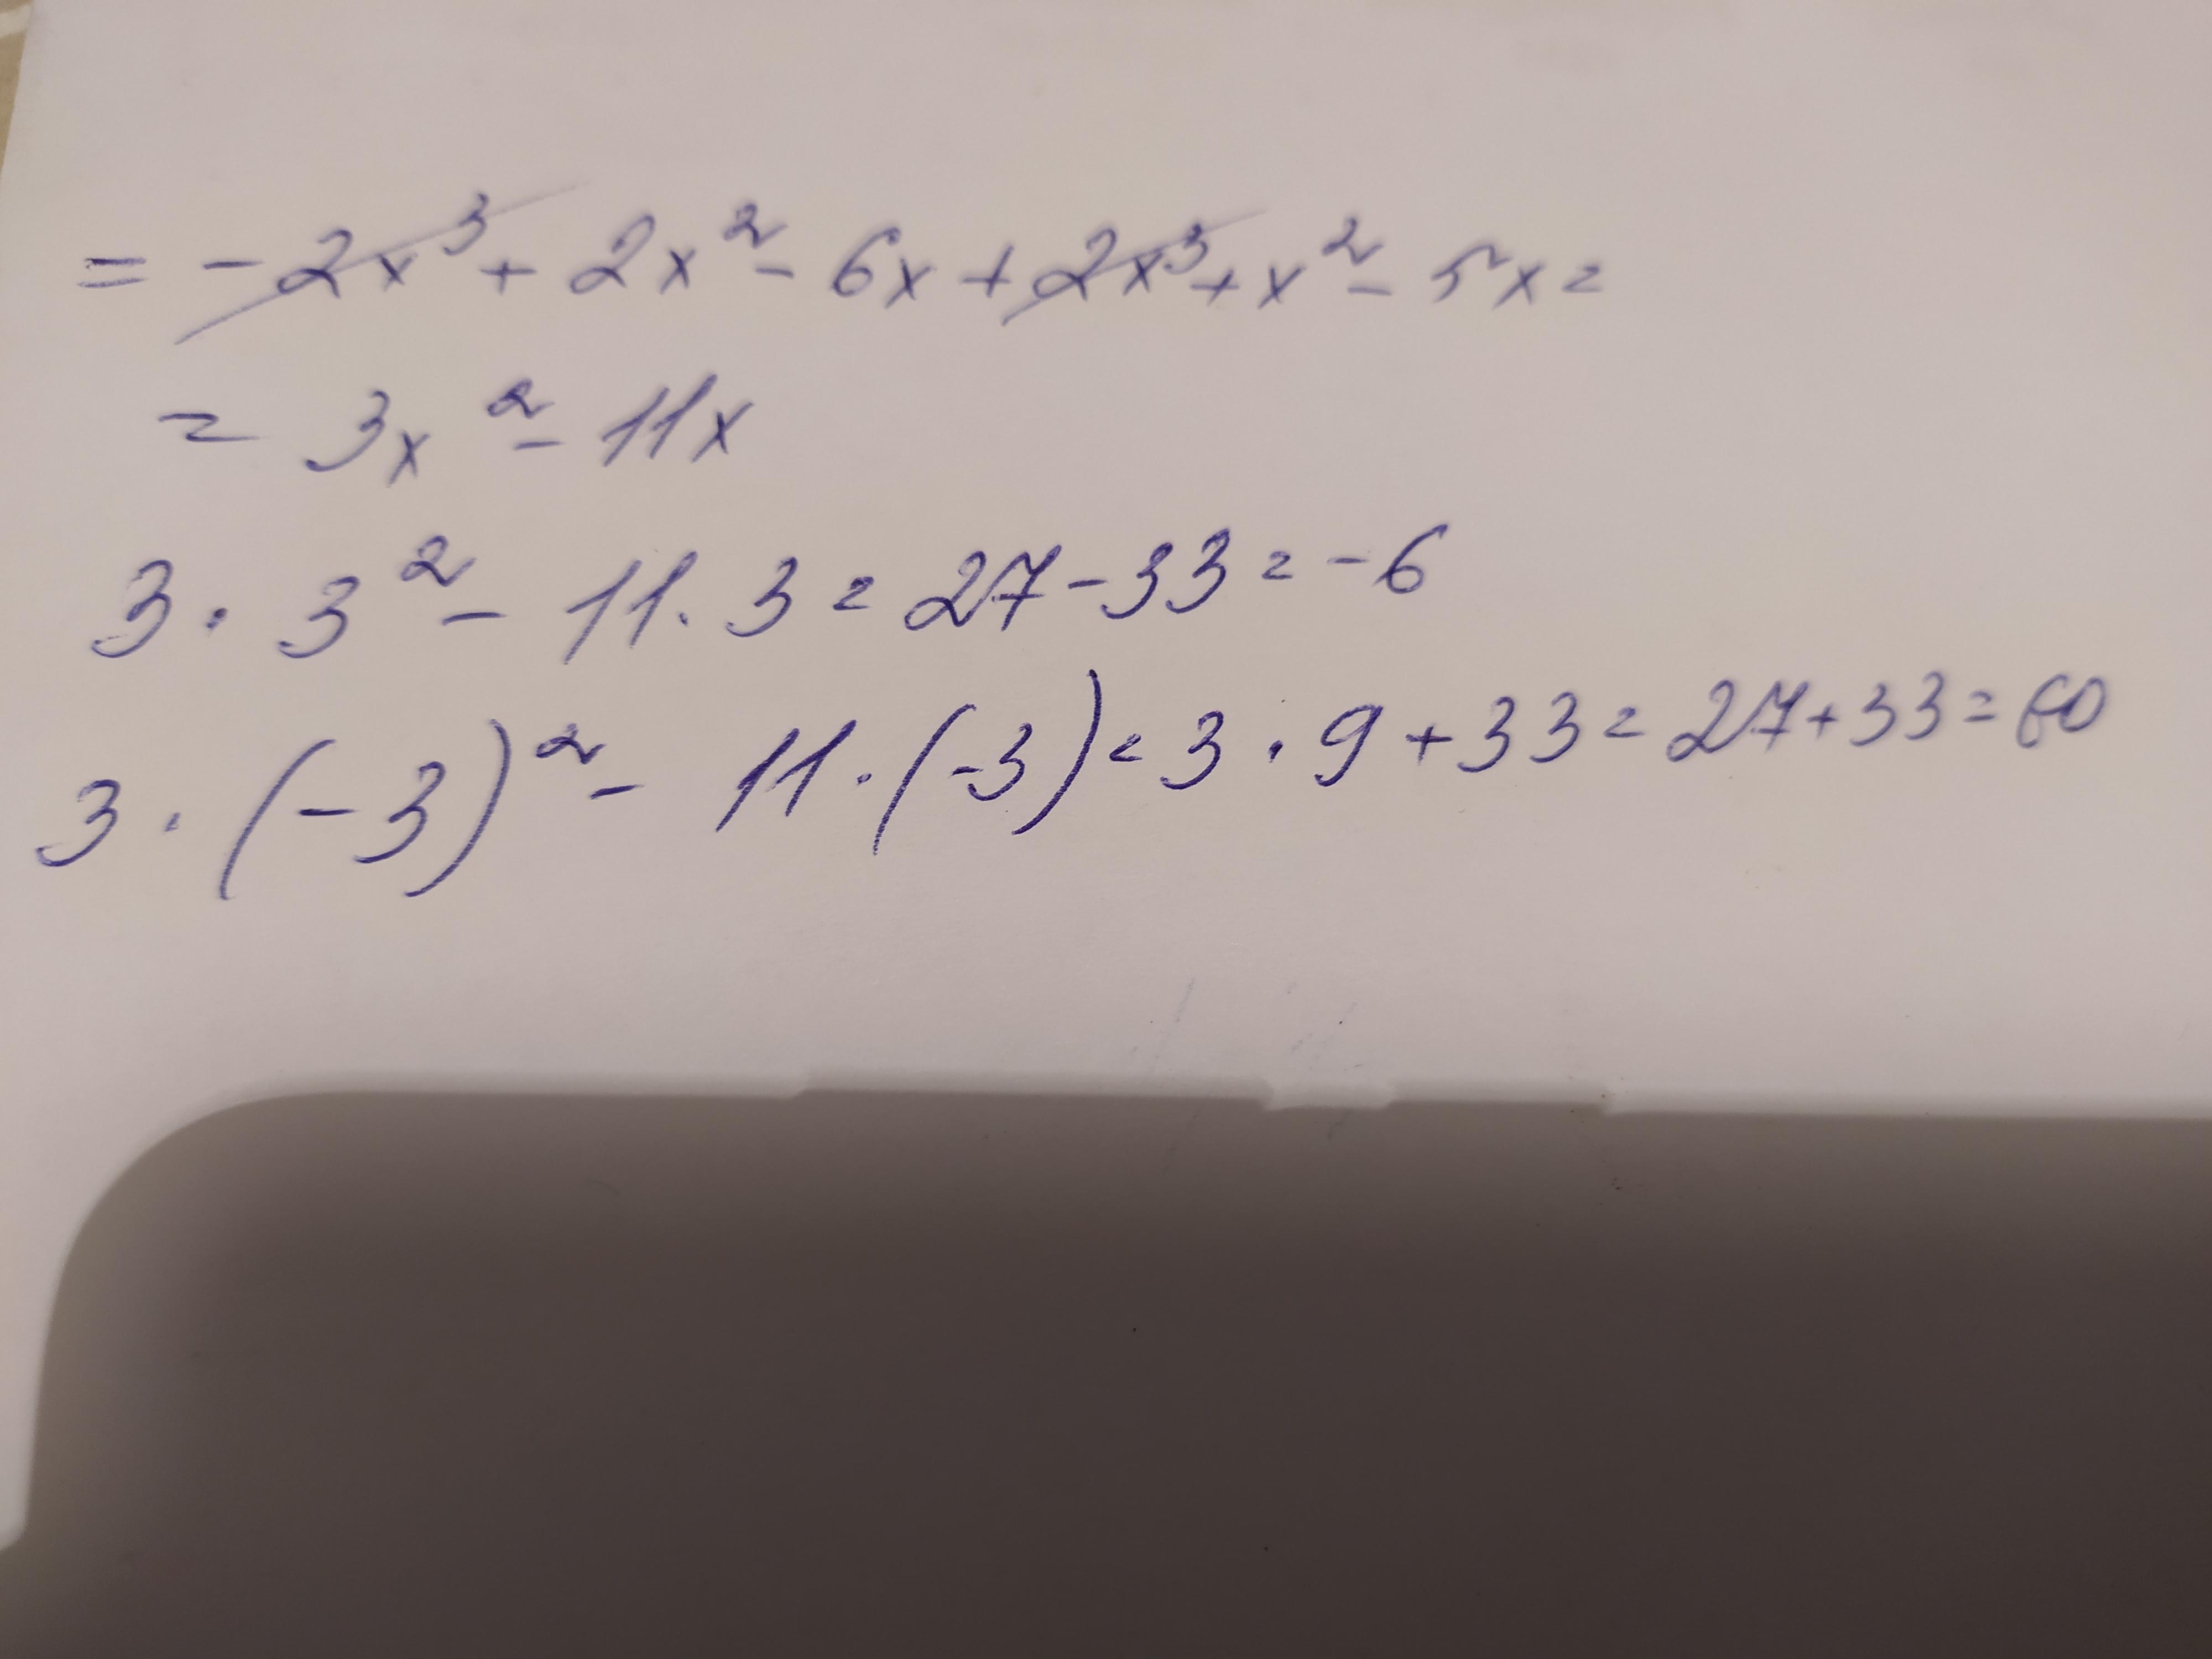 = -2x³ + 2x² - 6x + 2x³ + x² - 5x =
= 3x² - 11x
3 · 3² - 11 · 3 = 27 - 33 = -6
3 · (-3)² - 11 · (-3) = 3 · 9 + 33 = 27 + 33 = 60